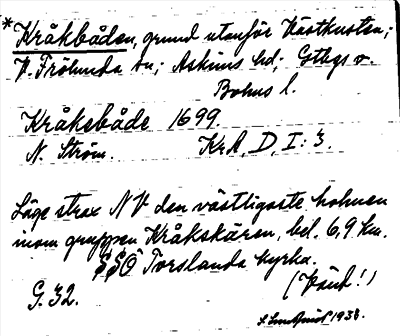 *Kråkbåden, grund utanför Västkusten;
V. Frölunda sn; Askims hd; Gtbgs o.
Bohus l.
Kråksbåde 1699.
N. Ström. KrA, D, I: 3.
Läge strax NV den västligaste holmen
inom gruppen Kråkskären, bel. 6,9 km.
SSO Torslanda kyrka.
(Känd!)
G. 32.
1938.